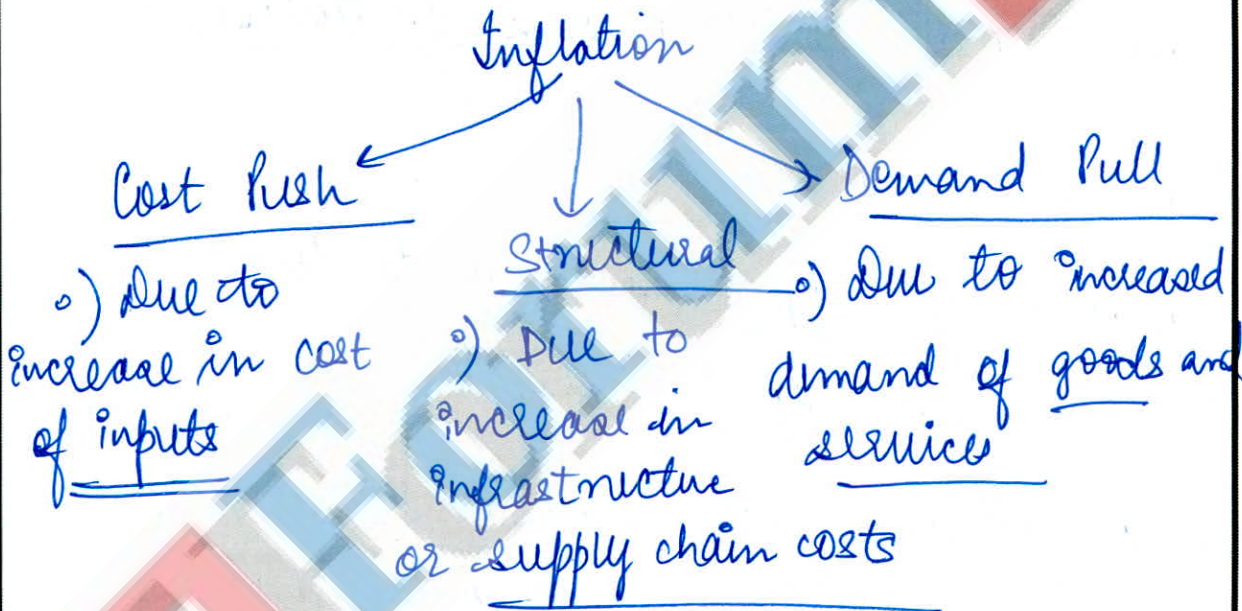 Inflation
Cost Push
o) Due to
increase in cost
of inputs
Structural
o) Due to
increase in
infrastructure
or supply chain costs
Demand Pull
o) Due to increased
demand of goods and
services
Forum